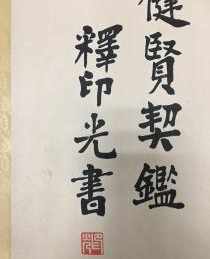 健賢契鑑
釋印光書